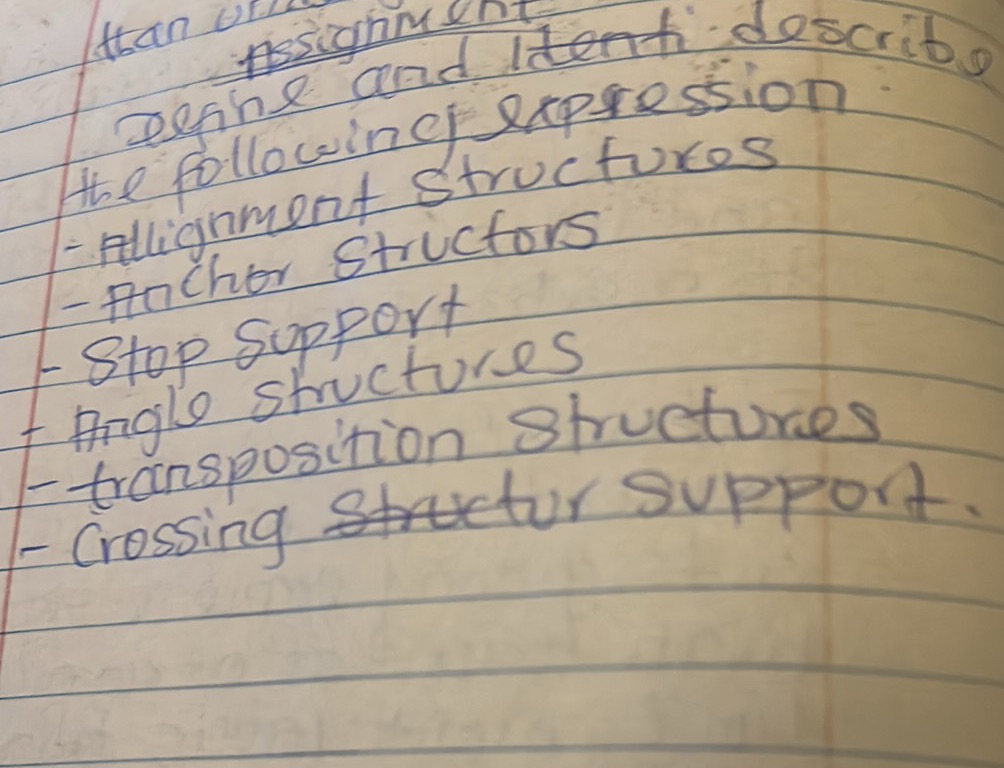 than
Assignment
Define and Identi describe
the following expression
- Allignment Structures
- Anchor Structors
- Stop Support
- Angle Structures
- transposition Structures
- Crossing Structur Support.